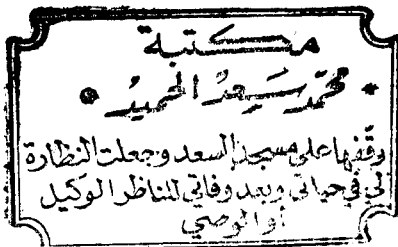 مكتبة
محمد سعد الحميد
وقفها على مسجد السعد وجعلت النظارة
لي في حياتي وبعد وفاتي للناظر الوكيل
أو الوصي